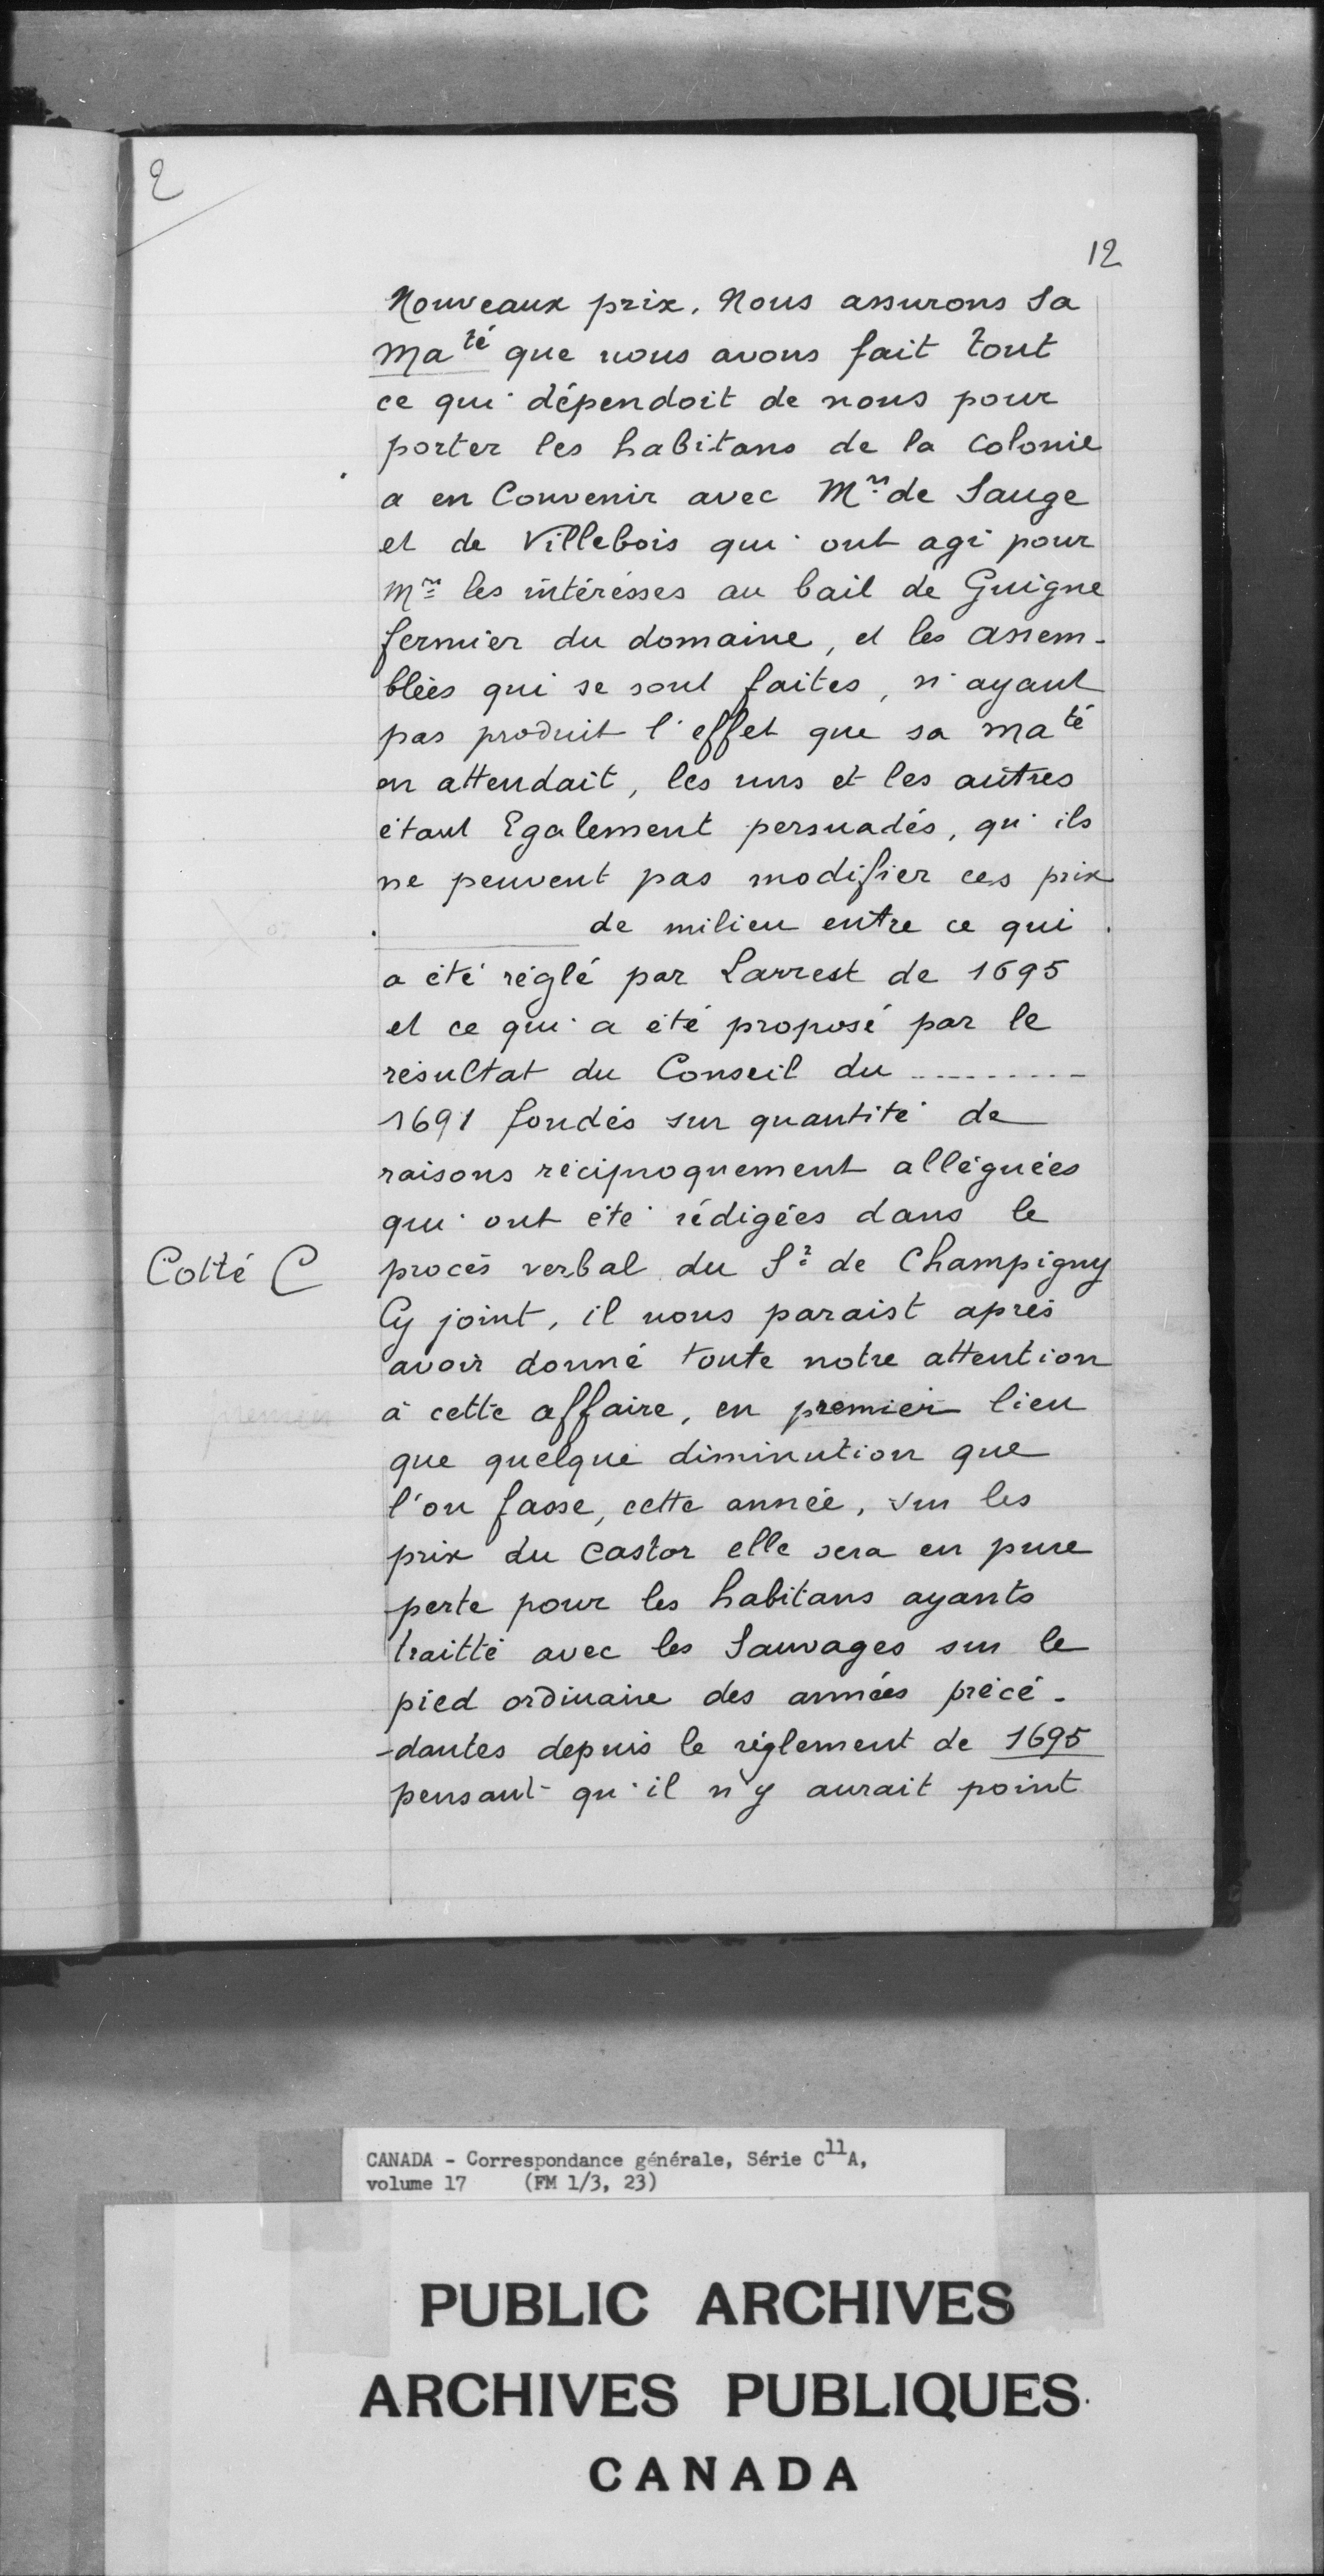 2
12
Nouveaux prix. Nous assurons Sa
Ma té que nous avons fait tout
ce qui dépendoit de nous pour
porter les habitans de la Colonie
a en Convenir avec Mrs de Sauge
et de Villebois qui ont agi pour
Mrs les intéressés au bail de Guigne
fermier du domaine, et les assem-
blées qui se sont faites, n'ayant
pas produit l'effet que sa ma té
en attendait, les uns et les autres
étant Egalement persuadés, qu'ils
ne peuvent pas modifier ces prix
de milieu entre ce qui
a été réglé par Larrest de 1695
et ce qui a été proposé par le
résultat du Conseil du ..........
1691 fondés sur quantité de
raisons réciproquement alléguées
qui ont été rédigées dans le
Cotté C procés verbal du Sr de Champigny
Cy joint, il nous paraist aprés
avoir donné toute notre attention
à cette affaire, en premier lieu
que quelque diminution que
l'on fasse, cette année, sur les
prix du Castor elle sera en pure
perte pour les habitans ayants
traitté avec les Sauvages sur le
pied ordinaire des années précé-
-dantes depuis le réglement de 1695
pensant qu'il n'y aurait point
CANADA - Correspondance générale, Série C11A,
volume 17 (FM 1/3, 23)
PUBLIC ARCHIVES
ARCHIVES PUBLIQUES
CANADA